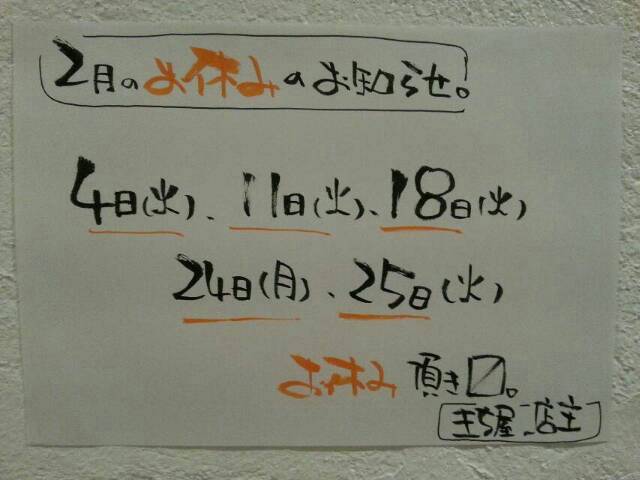 2月のお休みのお知らせ。
4日(火)、11日(火)、18日(火)
24日(月)、25日(火)
お休み頂き〼。
店主